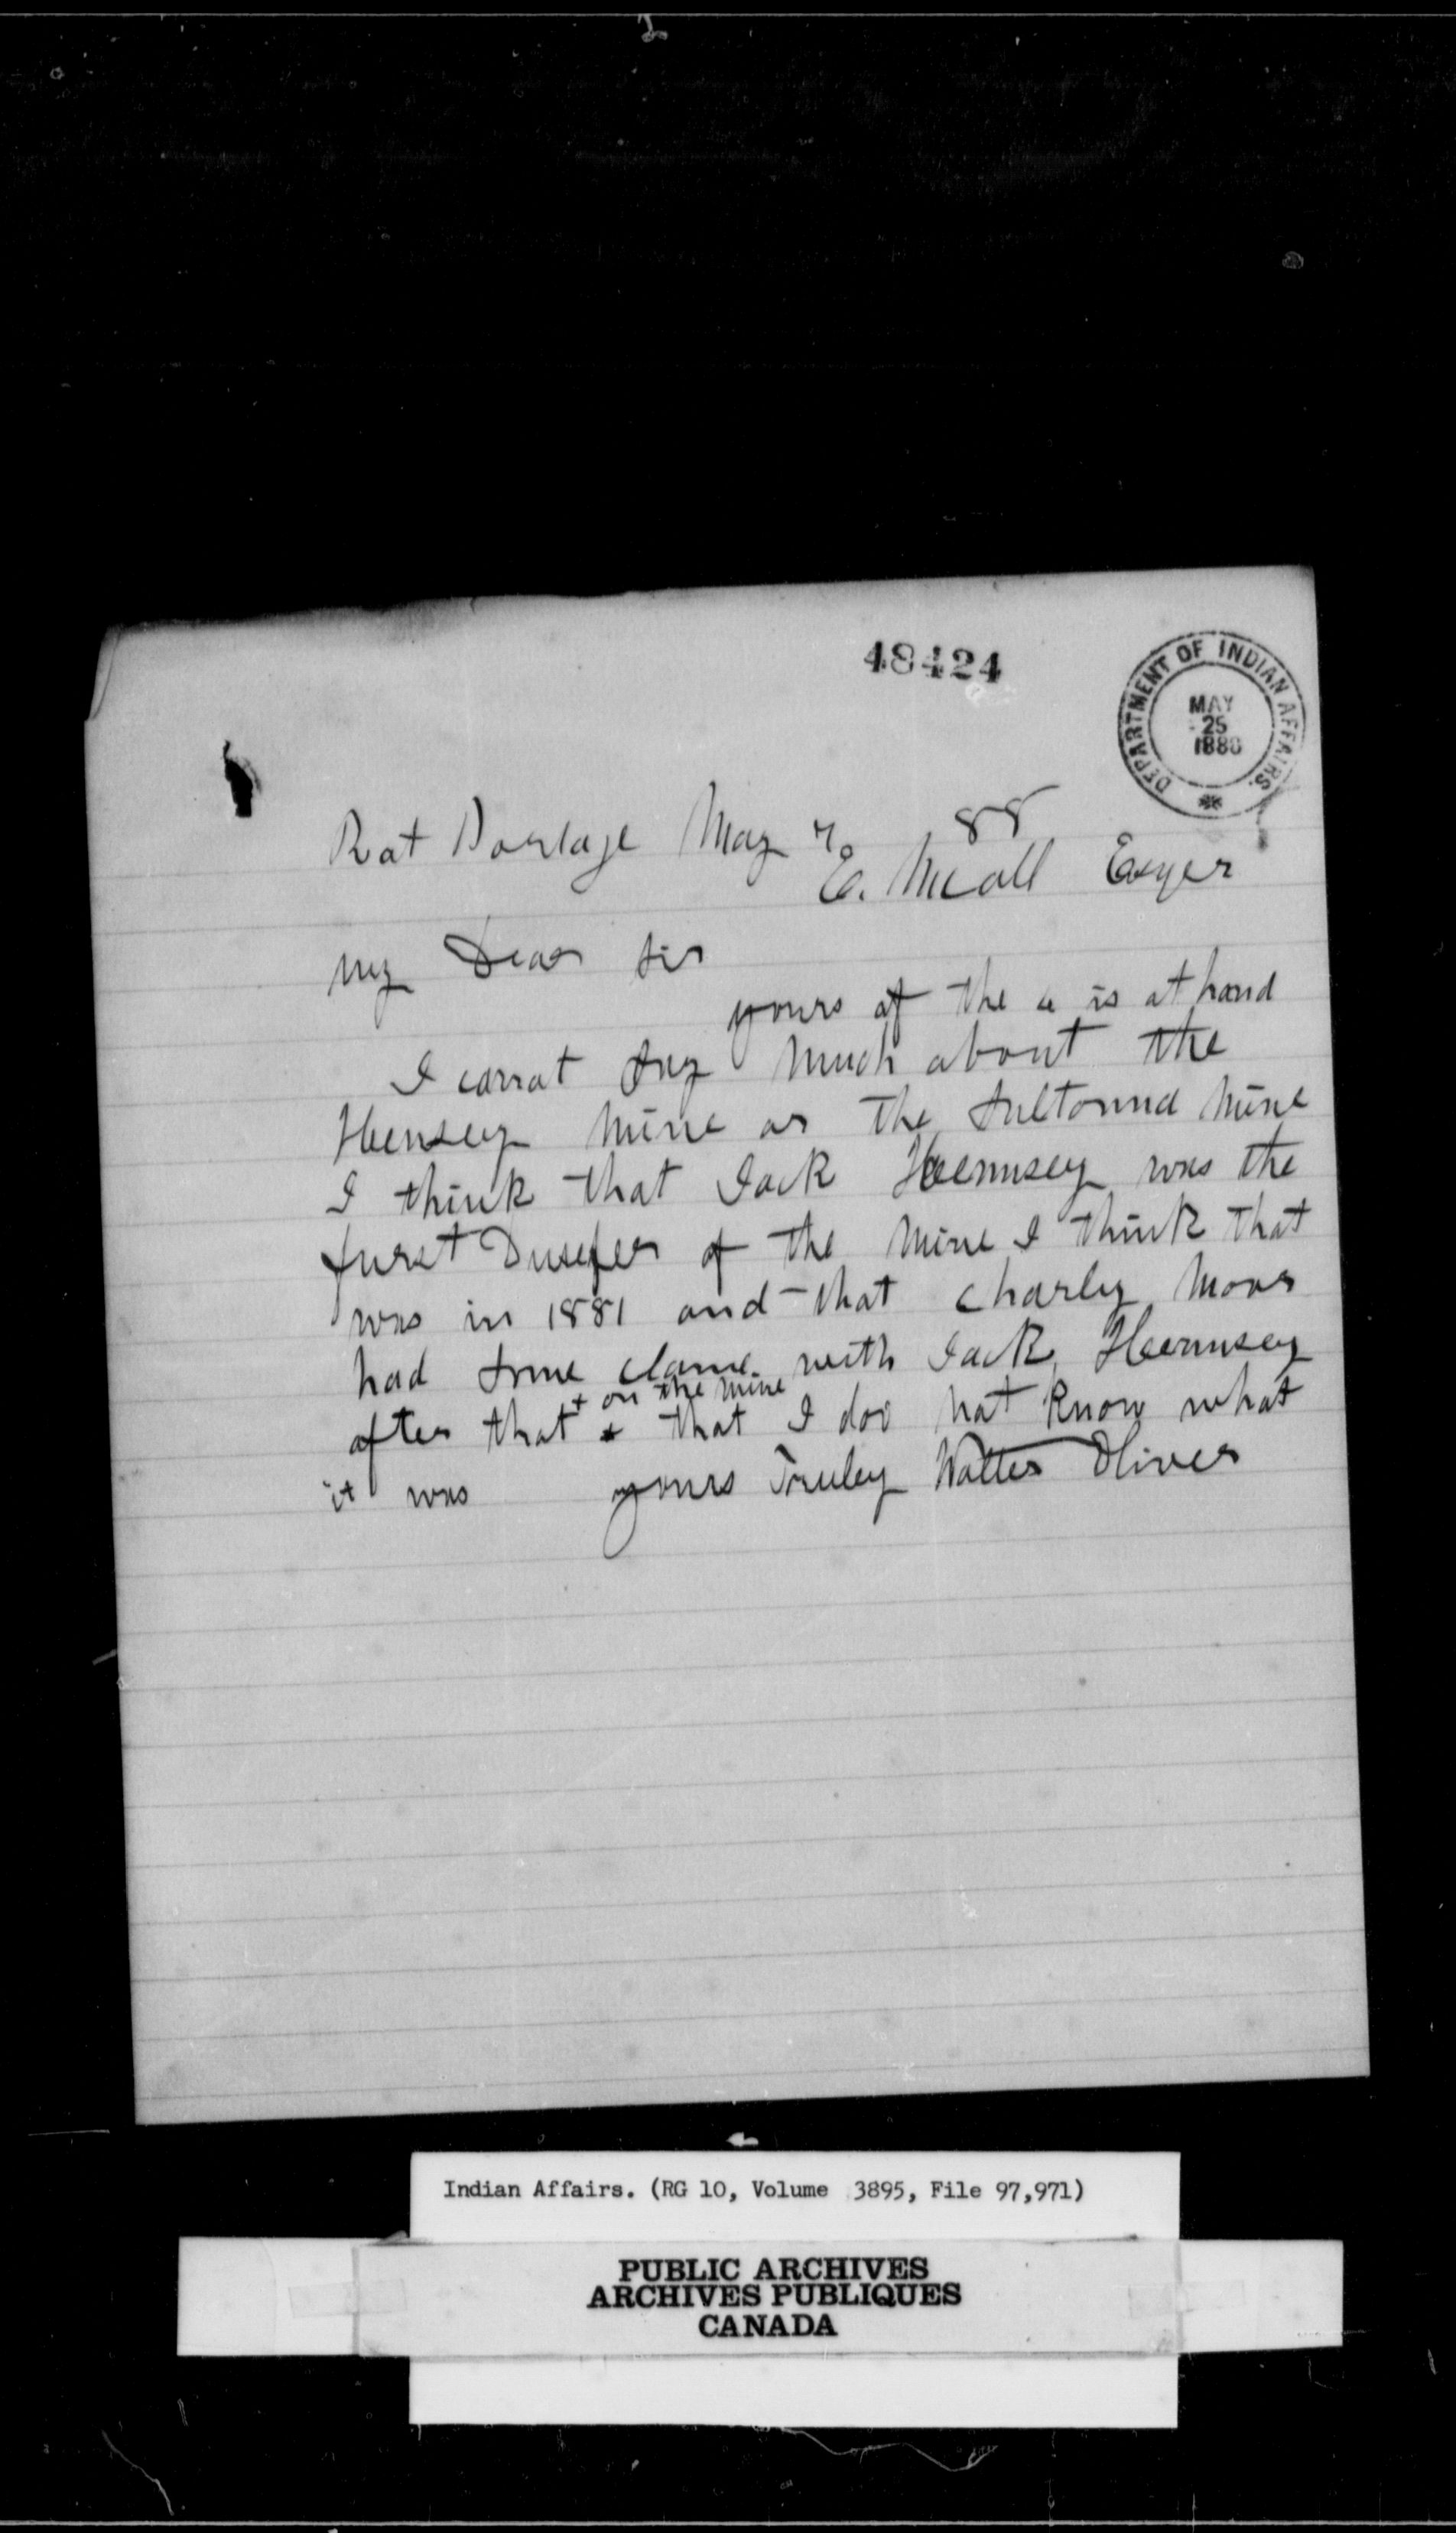 48424
DEPARTMENT OF INDIAN AFFAIRS.
MAY
25
1888
Rat Portage May 7 88
E. McColl Esqer
My Dear Sir
yours of the 4 is at hand
I cannot say much about the
Hennsey Mine or the Sultannd Mine
I think that Jack Heennsey was the
furst of the Mine I think that
was in 1881 and that Charley Moor
had some clame with Jack Heennsey
+ on the mine
after that + that I doo not know what
it was yours Truley Walter Oliver
Indian Affairs. (RG 10, Volume 3895, File 97,971)
PUBLIC ARCHIVES
ARCHIVES PUBLIQUES
CANADA